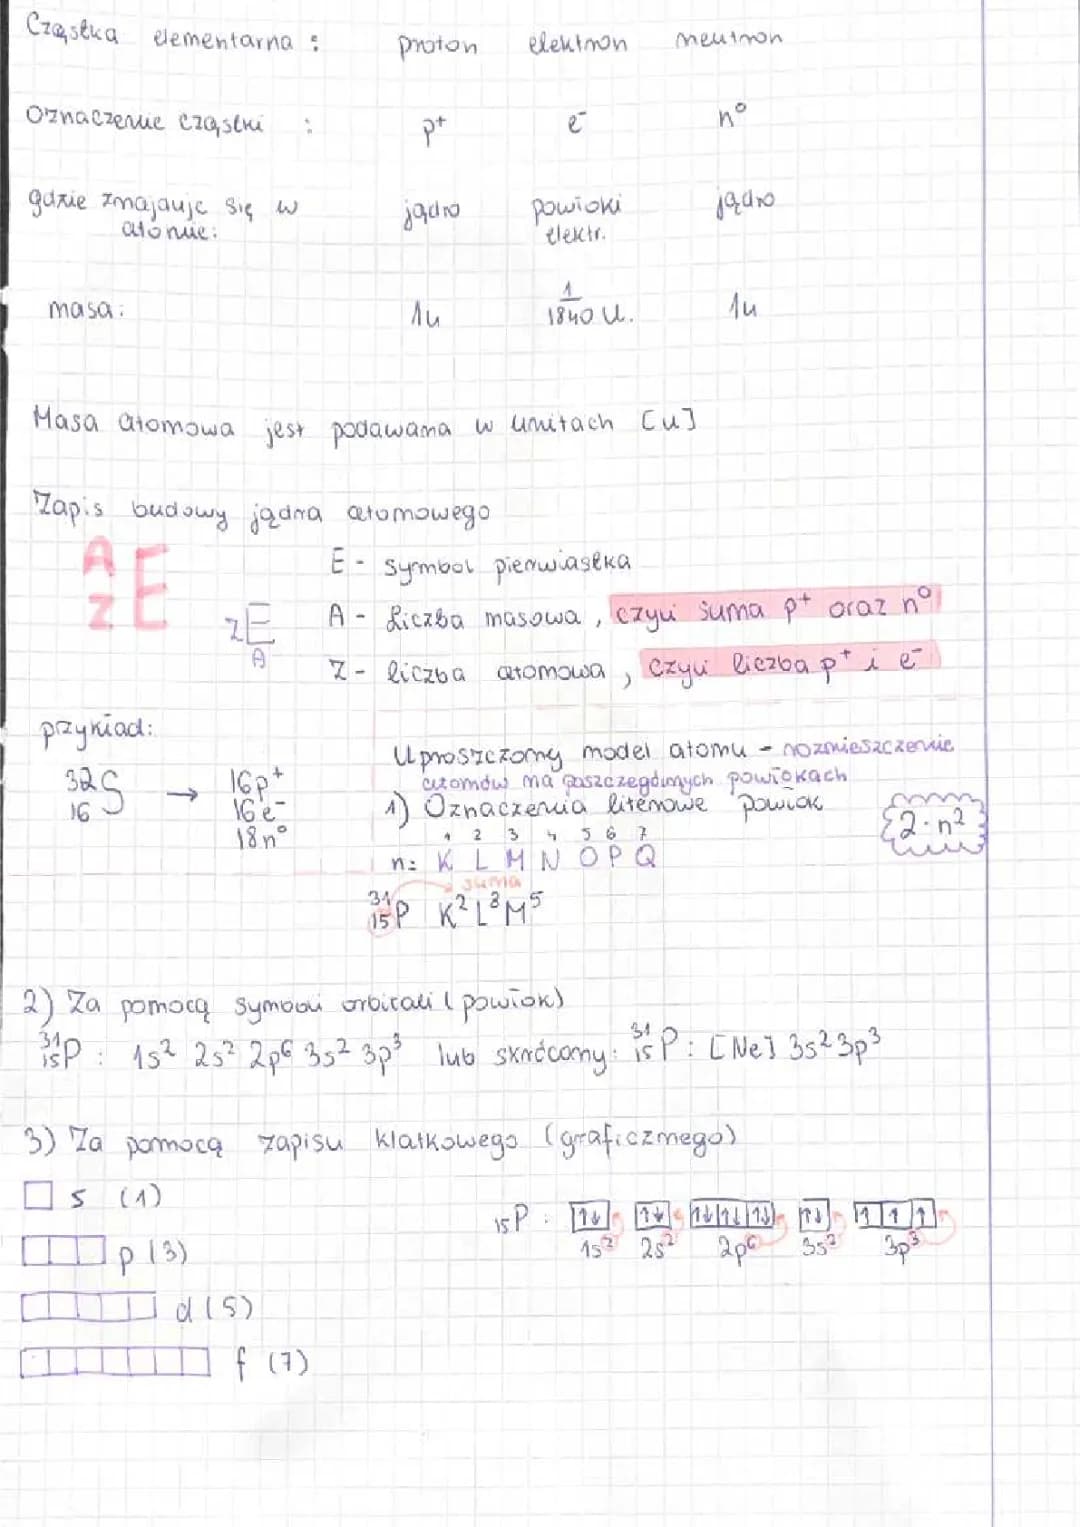 Cząstka elementarna : proton elektron neutron
Oznaczenie cząstki : p⁺ e⁻ n⁰
gdzie znajduje się w jądro powłoki jądro
atomie: elektr.
masa: 1u 1/1840 u. 1u
Masa atomowa jest podawana w unitach [u]
Zapis budowy jądra atomowego
A Z E
E - symbol pierwiastka
z E A
A - Liczba masowa, czyli suma p⁺ oraz n⁰
Z - liczba atomowa, czyli liczba p⁺ i e⁻
przykład:
³²₁₆S → 16p⁺
16e⁻
18n⁰
Uproszczony model atomu - rozmieszczenie
atomów na poszczególnych powłokach
1) Oznaczenia literowe powłok
2·n²
1 2 3 4 5 6 7
n: K L M N O P Q
suma
³¹₁₅P K² L⁸ M⁵
2) Za pomocą symboli orbitali (powłok)
³¹₁₅P : 1s² 2s² 2p⁶ 3s² 3p³ lub skrócony: ³¹₁₅P : [Ne] 3s² 3p³
3) Za pomocą zapisu klatkowego (graficznego)
s (1)
₁₅P : ↑↓ ↑↓ ↑↓ ↑↓ ↑↓ ↑↓ ↑ ↑ ↑
1s² 2s² 2p⁶ 3s² 3p³
p (3)
d (5)
f (7)